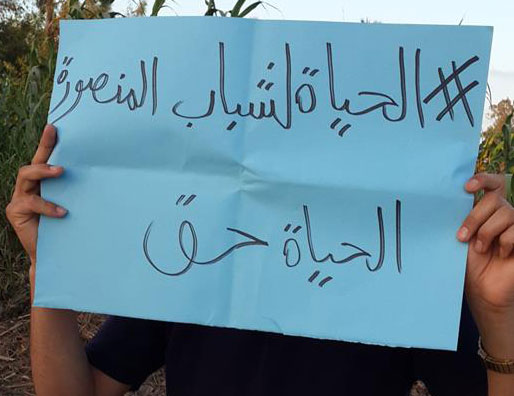 #الحياة لشباب المنصورة
الحياة حق